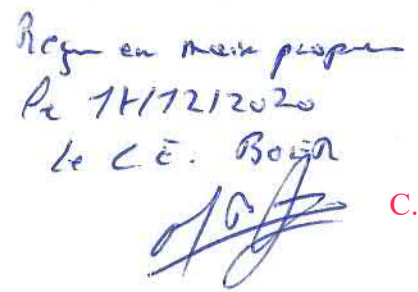 Reçu en main propre
le 17/12/2020
le C.E. BOUËR
C.